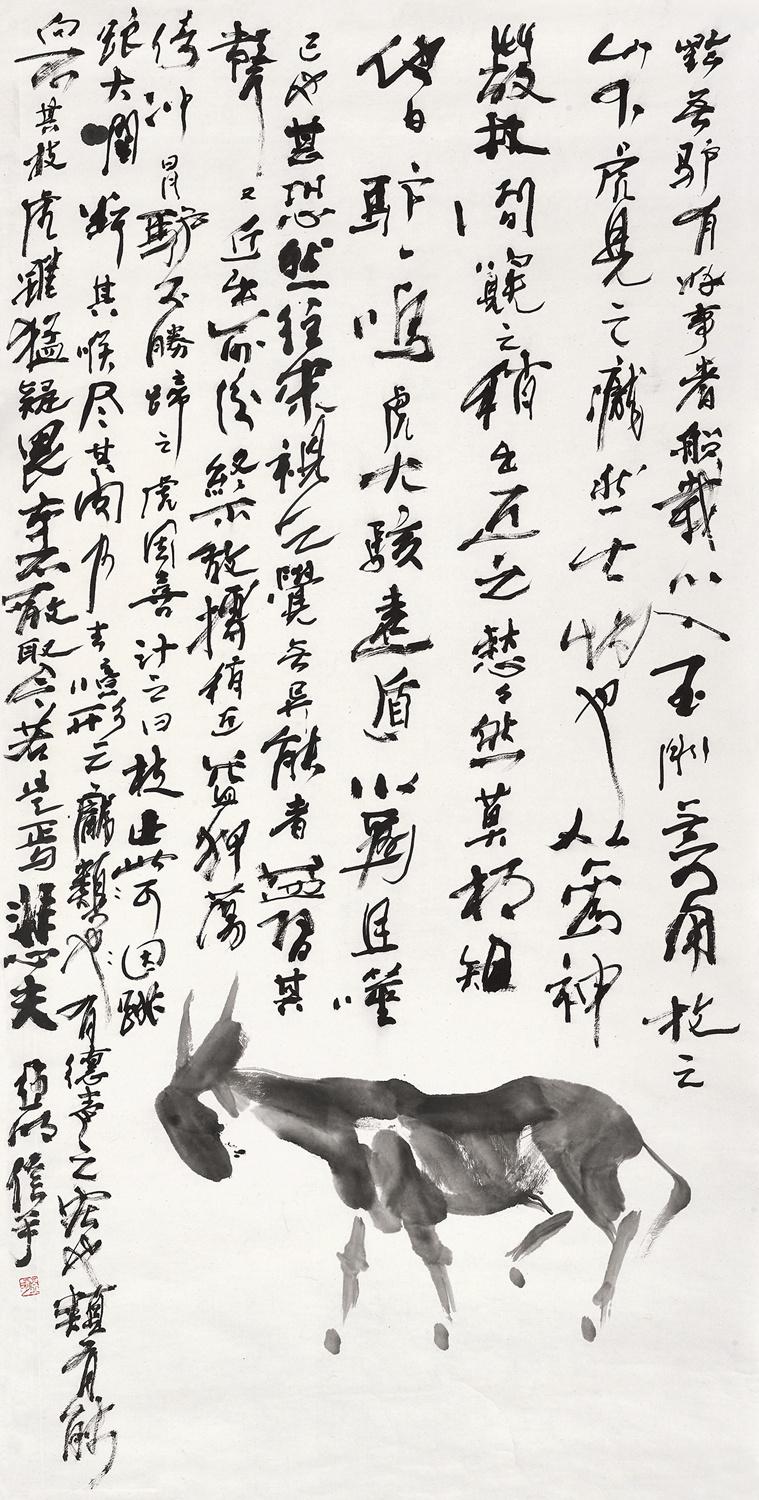 黔无驴有好事者船载以入至则无可用放之
山下虎见之龐然大物也以為神
蔽林间窺之稍出近之憖憖然莫相知
他日驴一鳴虎大駭遠遁以為且噬
已也甚恐然往来視之覺无异能者益習其
聲又近出前後終不敢搏稍近益狎蕩
倚冲冒驢不勝怒蹄之虎因喜計之曰技止此耳因跳
踉大㘎断其喉尽其肉乃去噫形之龐類也有德聲之宏也類有能
向不出其技虎雖猛疑畏卒不敢取今若是焉悲夫 亚明